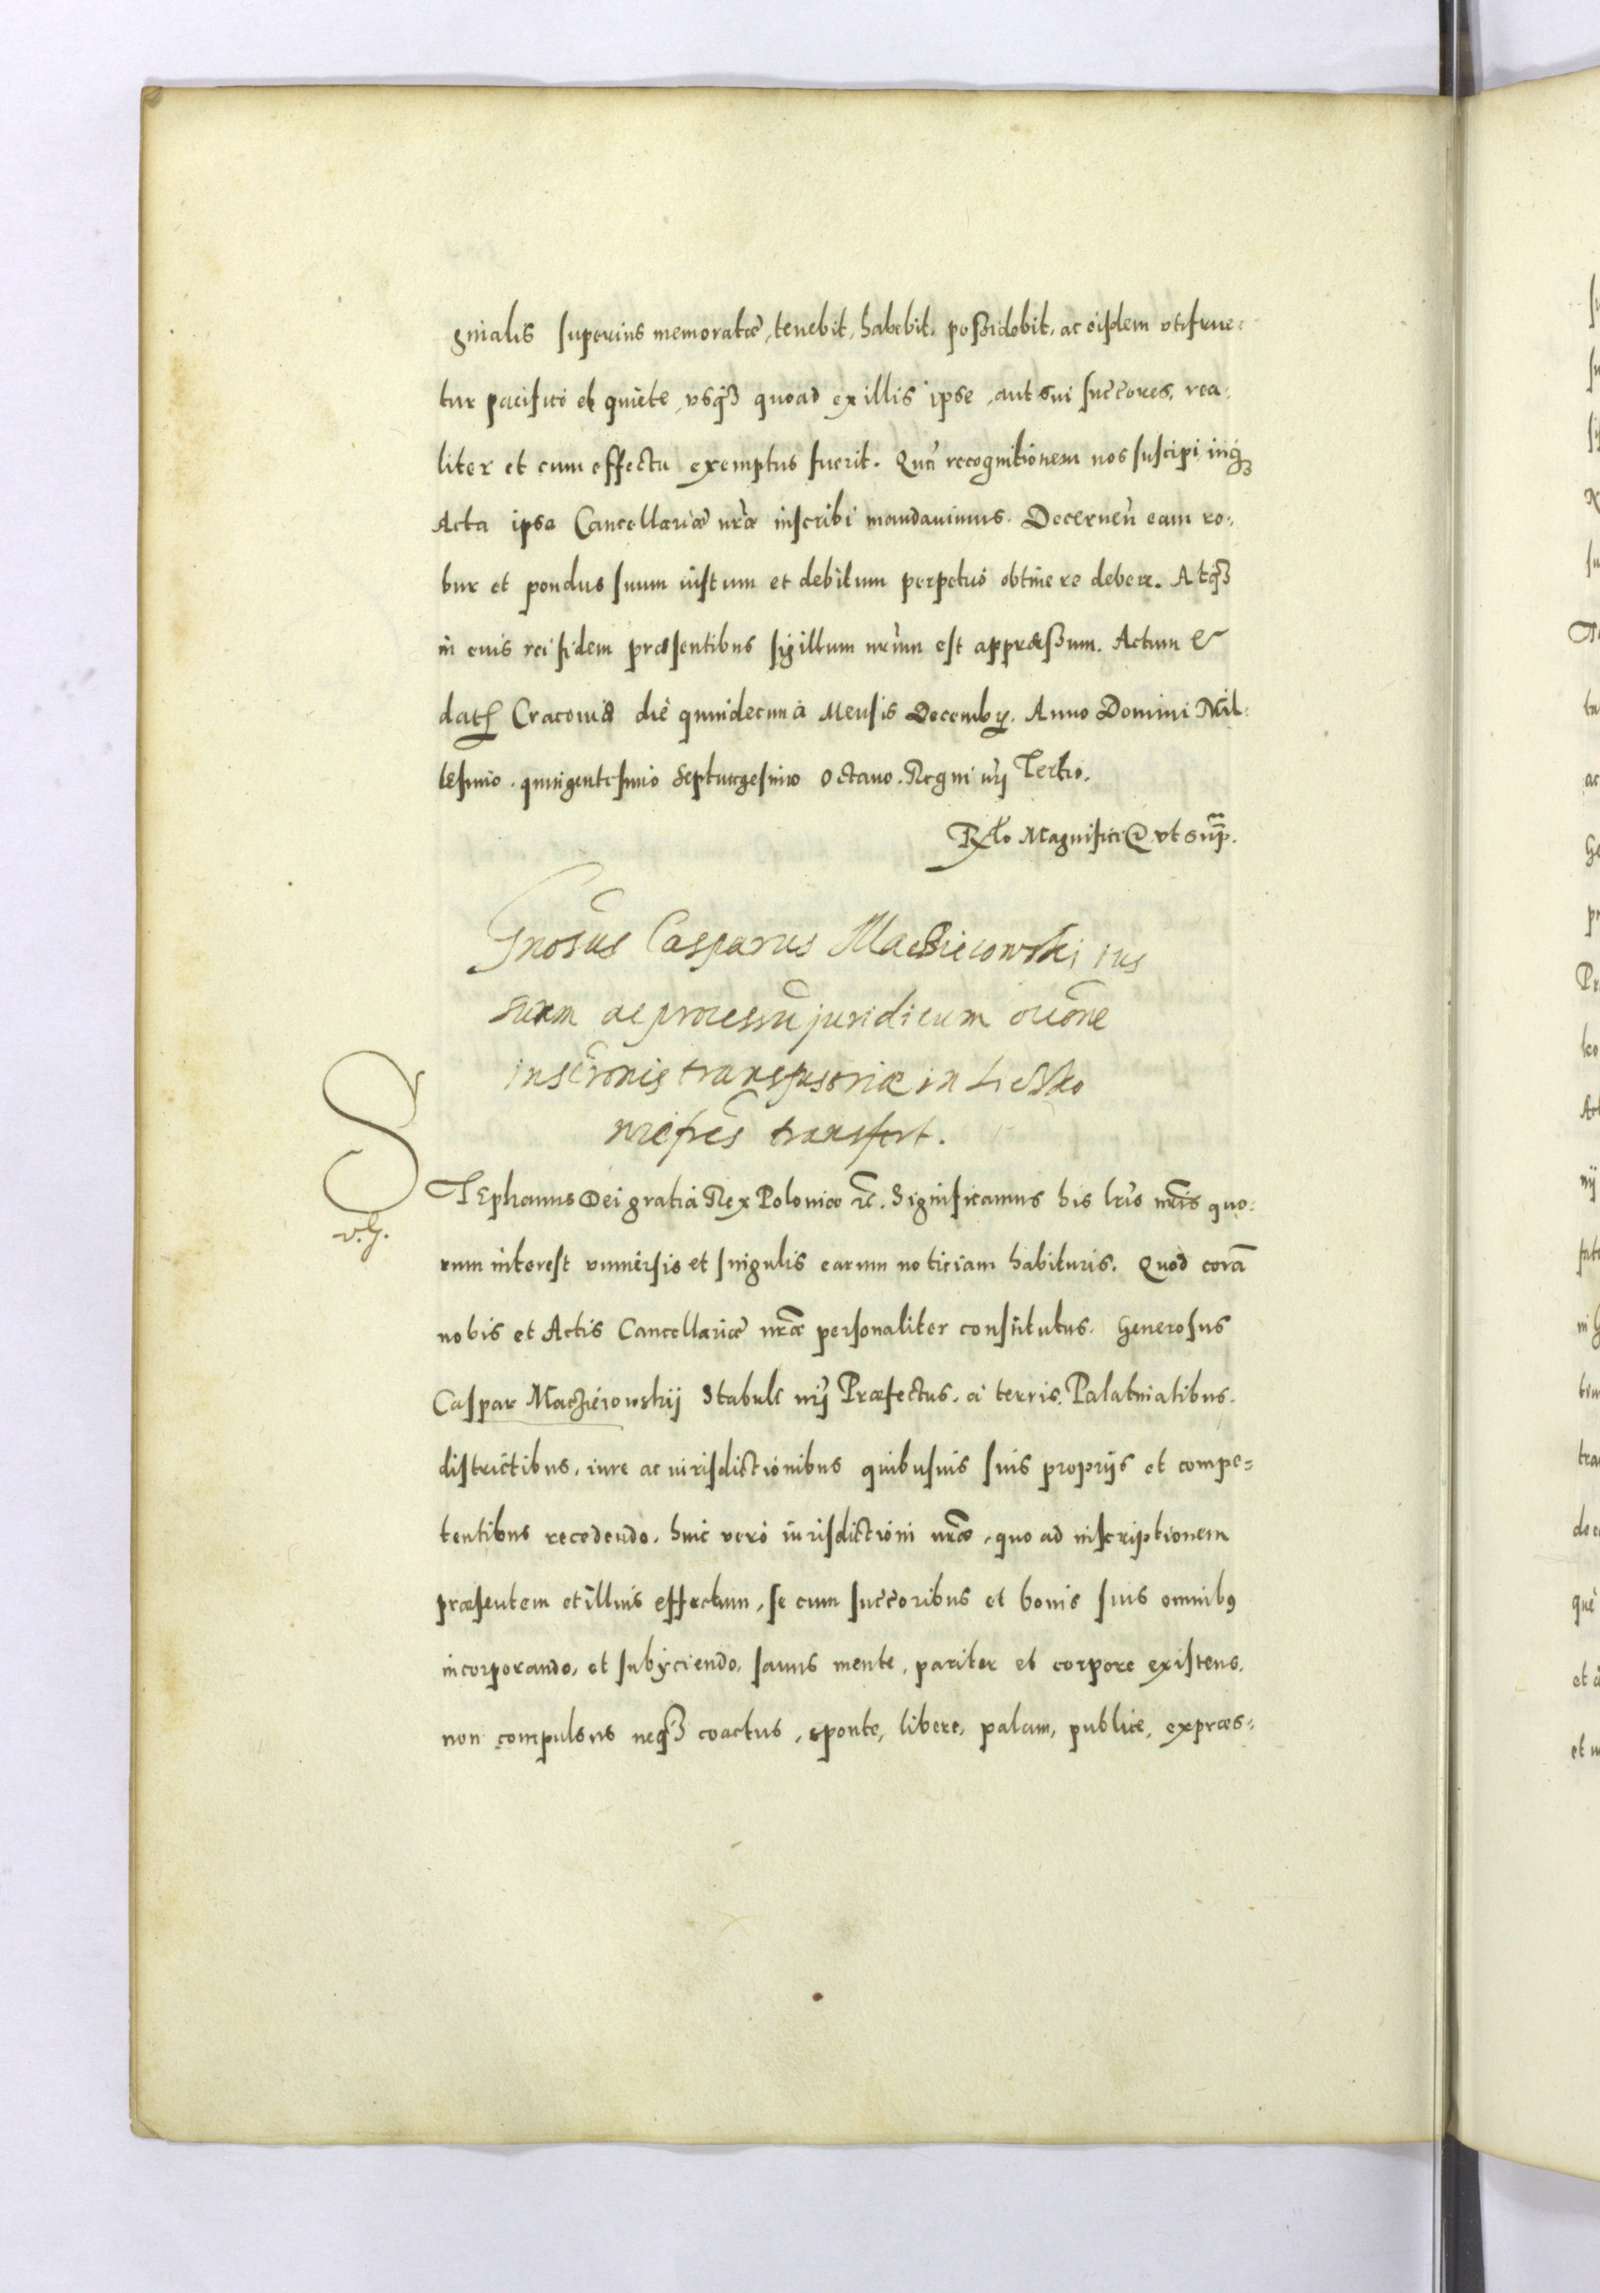 gnialis superius memoratæ, tenebit, habebit, possidebit, ac eisdem vtifrue:
tur pacificè et quiete, vsq3 quoad ex illis ipse, aut sui succ̃ores, rea:
liter et cum effectu exemptus fuerit. Qua᷈ recognitionem nos suscipi, inq3
Acta ipsa Cancellariæ nr̃æ inscribi mandauimus. Decernen̄ eam ro:
bur et pondus suum iustum et debitum perpetuò obtinere debere. Atq3
in cuius rei fidem præsentibus sigillum nr̃um est appræssum. Actum &
datꝭ Cracouiæ die quindecima Mensis Decembrꝭ. Anno Domini Mil:
lesimo. quingentesimo Septuagesimo Octauo. Regni nrĩ Tertio.
Rlo Magnifici @ vt sup̃.
Gnosus Casparus Maciieiowski ius
suum ac processũ juridicum oc̃one
inscr̃onis transfusoriæ in
transfert.
S
TEphanus Dei gratia Rex Poloniæ etc̃. Significamus his lr̃is nr̃is quo:
v. G.
rum interest vniuersis et singulis earum noticiam habituris. Quod corã
nobis et Actis Cancellariæ nr̃æ personaliter constitutus. Generosus
Caspar Maczieiowskij Stabuli nrĩ Præfectus. à terris, Palatinatibus.
districtibus, iure ac iurisdictionibus quibusuis suis proprijs et compe=
tentibus recedendo. huic verò iurisdictioni nr̃æ, quo ad inscriptionem
præsentem et illius effectum, se cum succ̃oribus et bonis suis omnib9
incorporando, et subijciendo, sanus mente, pariter et corpore existens,
non compulsus neq3 coactus, sponte, libere, palam, publice, expræs=